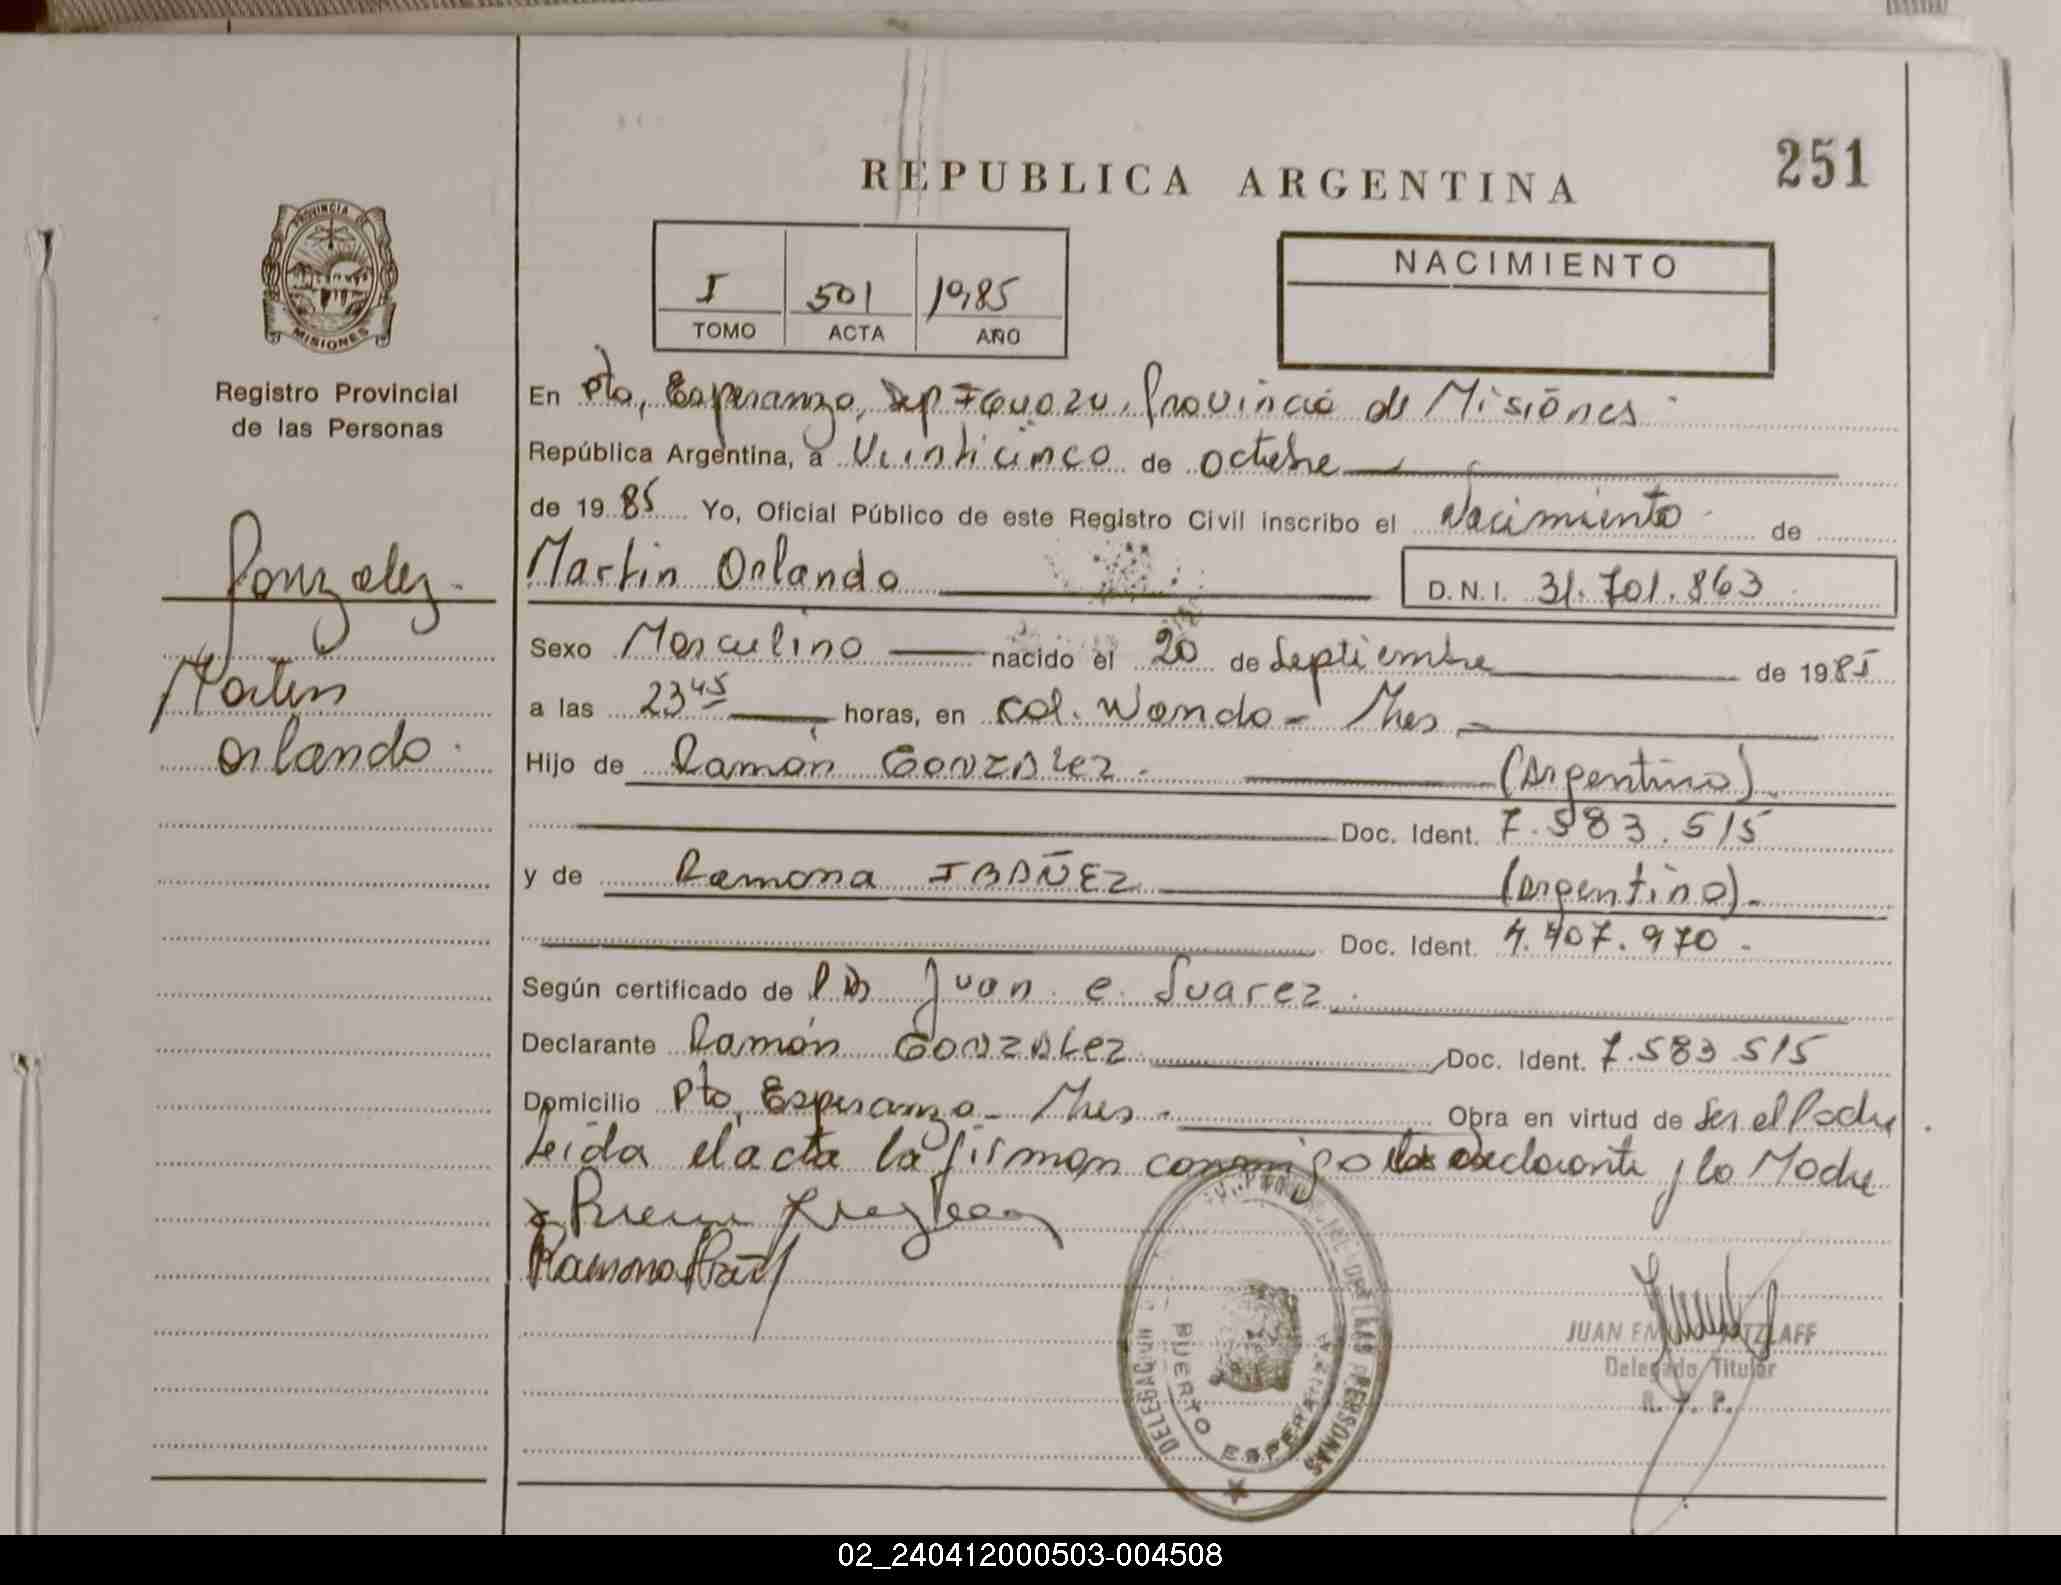 REPUBLICA ARGENTINA
251
PROVINCIA DE
MISIONES
Registro Provincial
de las Personas
Gonzalez.
Martin
Orlando.
I 501 1985
TOMO ACTA AÑO
NACIMIENTO
En Pto, Esperanza, Dep Iguazu, Provincia de Misiones.
República Argentina, a Veinticinco de octubre
de 1985 Yo, Oficial Público de este Registro Civil inscribo el Nacimiento de
Martin Orlando D.N.I. 31.701.863
Sexo Masculino nacido el 20 de Septiembre de 1985
a las 23 45 horas, en Col. Wanda - Mnes
Hijo de Ramón GONZALEZ. (Argentino)
Doc. Ident. 7.583.515
y de Ramona IBAÑEZ (Argentina).
Doc. Ident. 4.407.970.
Según certificado de Juan e. Suarez.
Declarante Ramón GONZALEZ Doc. Ident. 7.583.515
Domicilio Pto, Esperanza - Mnes. Obra en virtud de Ser el Padre
Leída el acta la firman conmigo declarante y la Madre
Ramona
DELEGACION
PUERTO ESPERANZA
PERSONAS
JUAN TZLAFF
Delegado Titular
R. P. P.
02_240412000503-004508